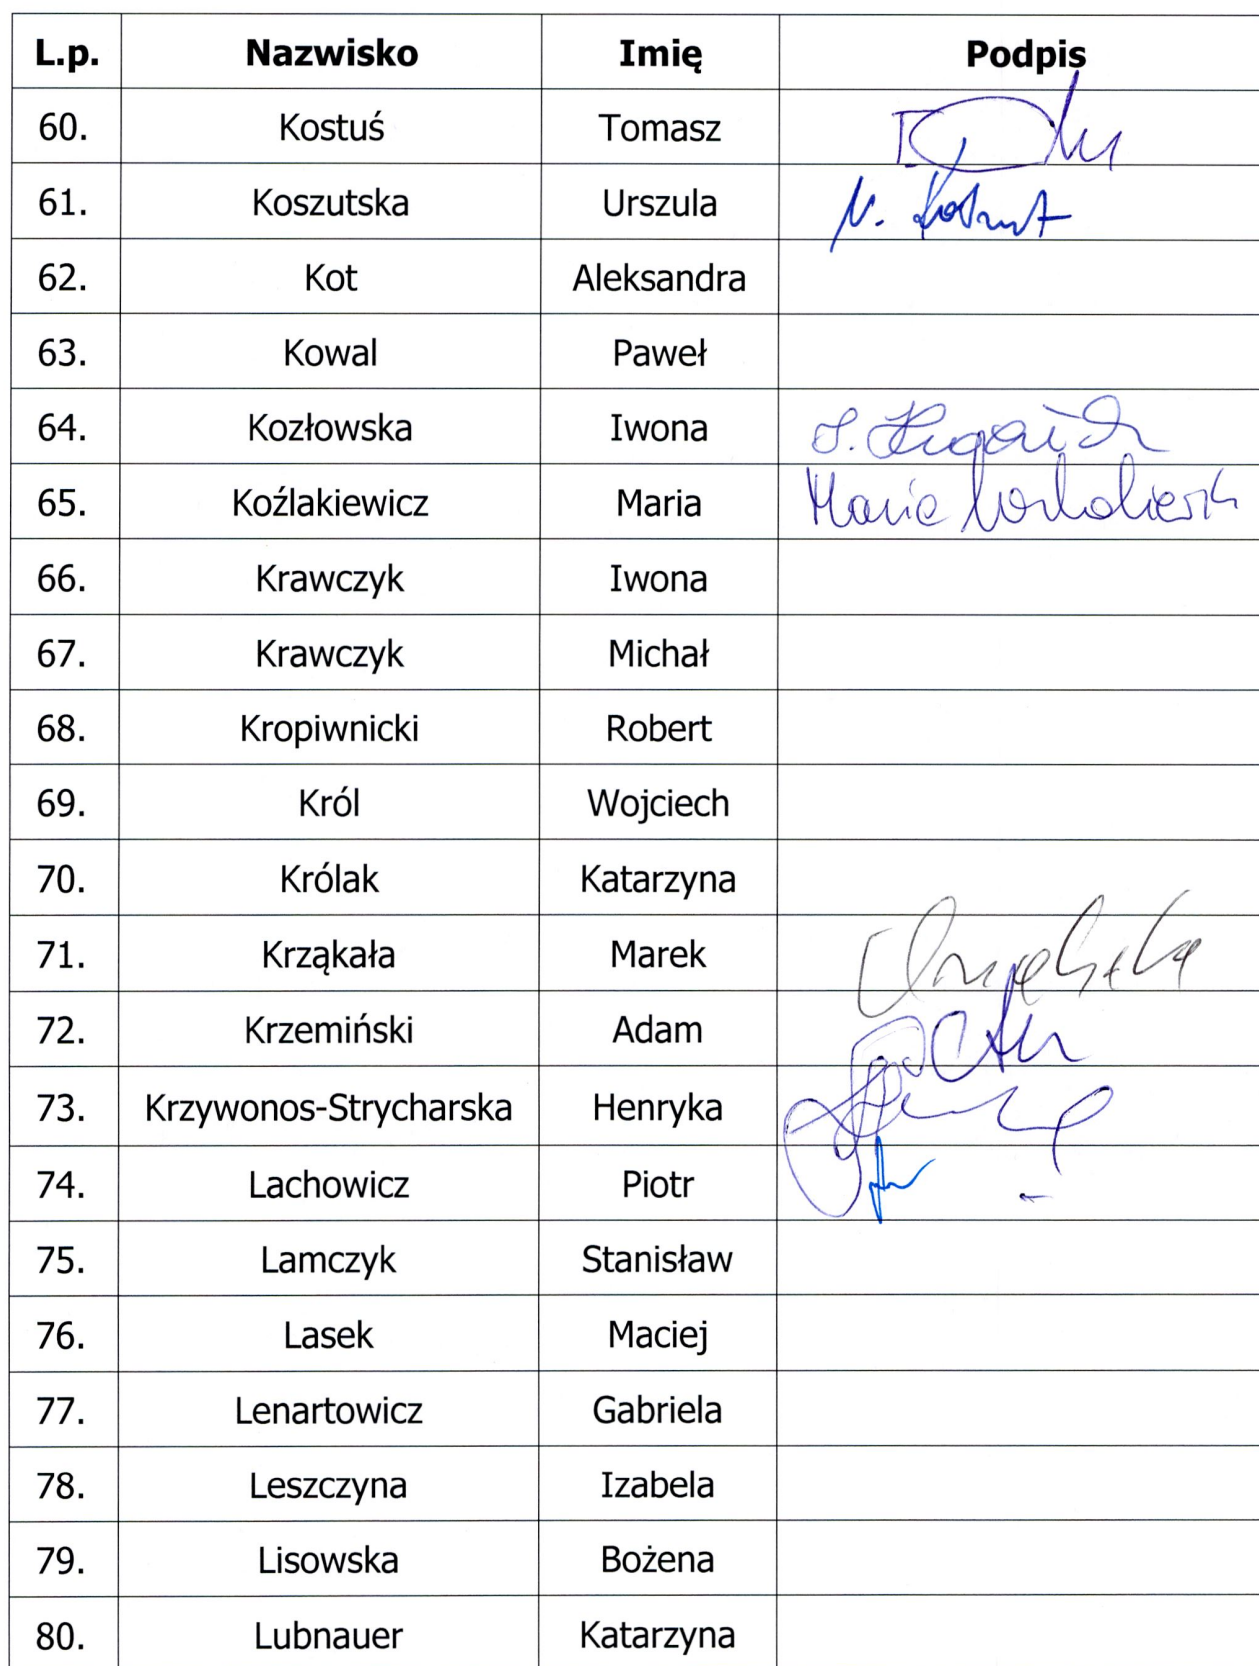 L.p. Nazwisko Imię Podpis
60. Kostuś Tomasz
61. Koszutska Urszula
62. Kot Aleksandra
63. Kowal Paweł
64. Kozłowska Iwona
65. Koźlakiewicz Maria Maria
66. Krawczyk Iwona
67. Krawczyk Michał
68. Kropiwnicki Robert
69. Król Wojciech
70. Królak Katarzyna
71. Krząkała Marek
72. Krzemiński Adam
73. Krzywonos-Strycharska Henryka
74. Lachowicz Piotr
75. Lamczyk Stanisław
76. Lasek Maciej
77. Lenartowicz Gabriela
78. Leszczyna Izabela
79. Lisowska Bożena
80. Lubnauer Katarzyna